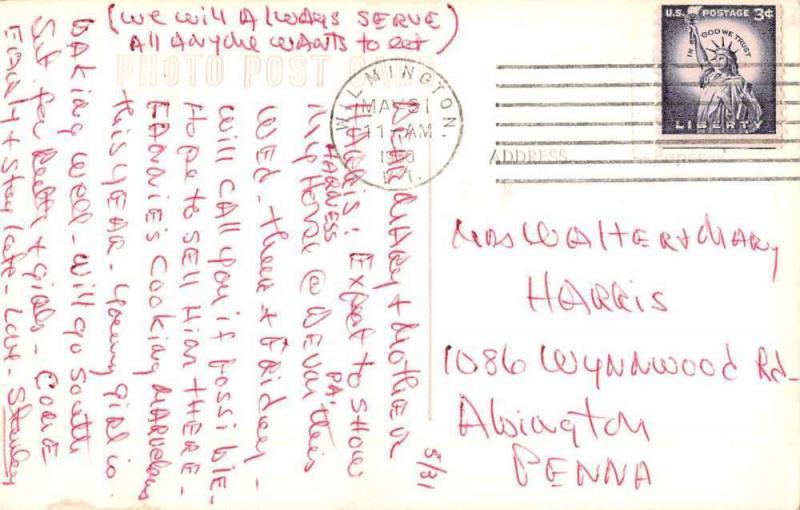 (We will Always SERVE)
All Anyone wants to eat
PHOTO POST CARD
5/31
DEAR MARY + Mother
HARRIS: Expect to show
my HARNESS Horse @ Devon PA. this
Wed - Thurs + Friday -
Will call you if possible -
Hope to sell him there -
Fannie's Cooking marvelous
this year - young girl is
baking well - will go south
Early + Stay late - Love - Stanley
WILMINGTON
MAY 31
11 AM
VT.
U.S. POSTAGE 3¢
IN GOD WE TRUST
LIBERTY
ADDRESS
MRS WALTER + MARY
HARRIS
1086 WYNNWOOD Rd -
Abington
PENNA